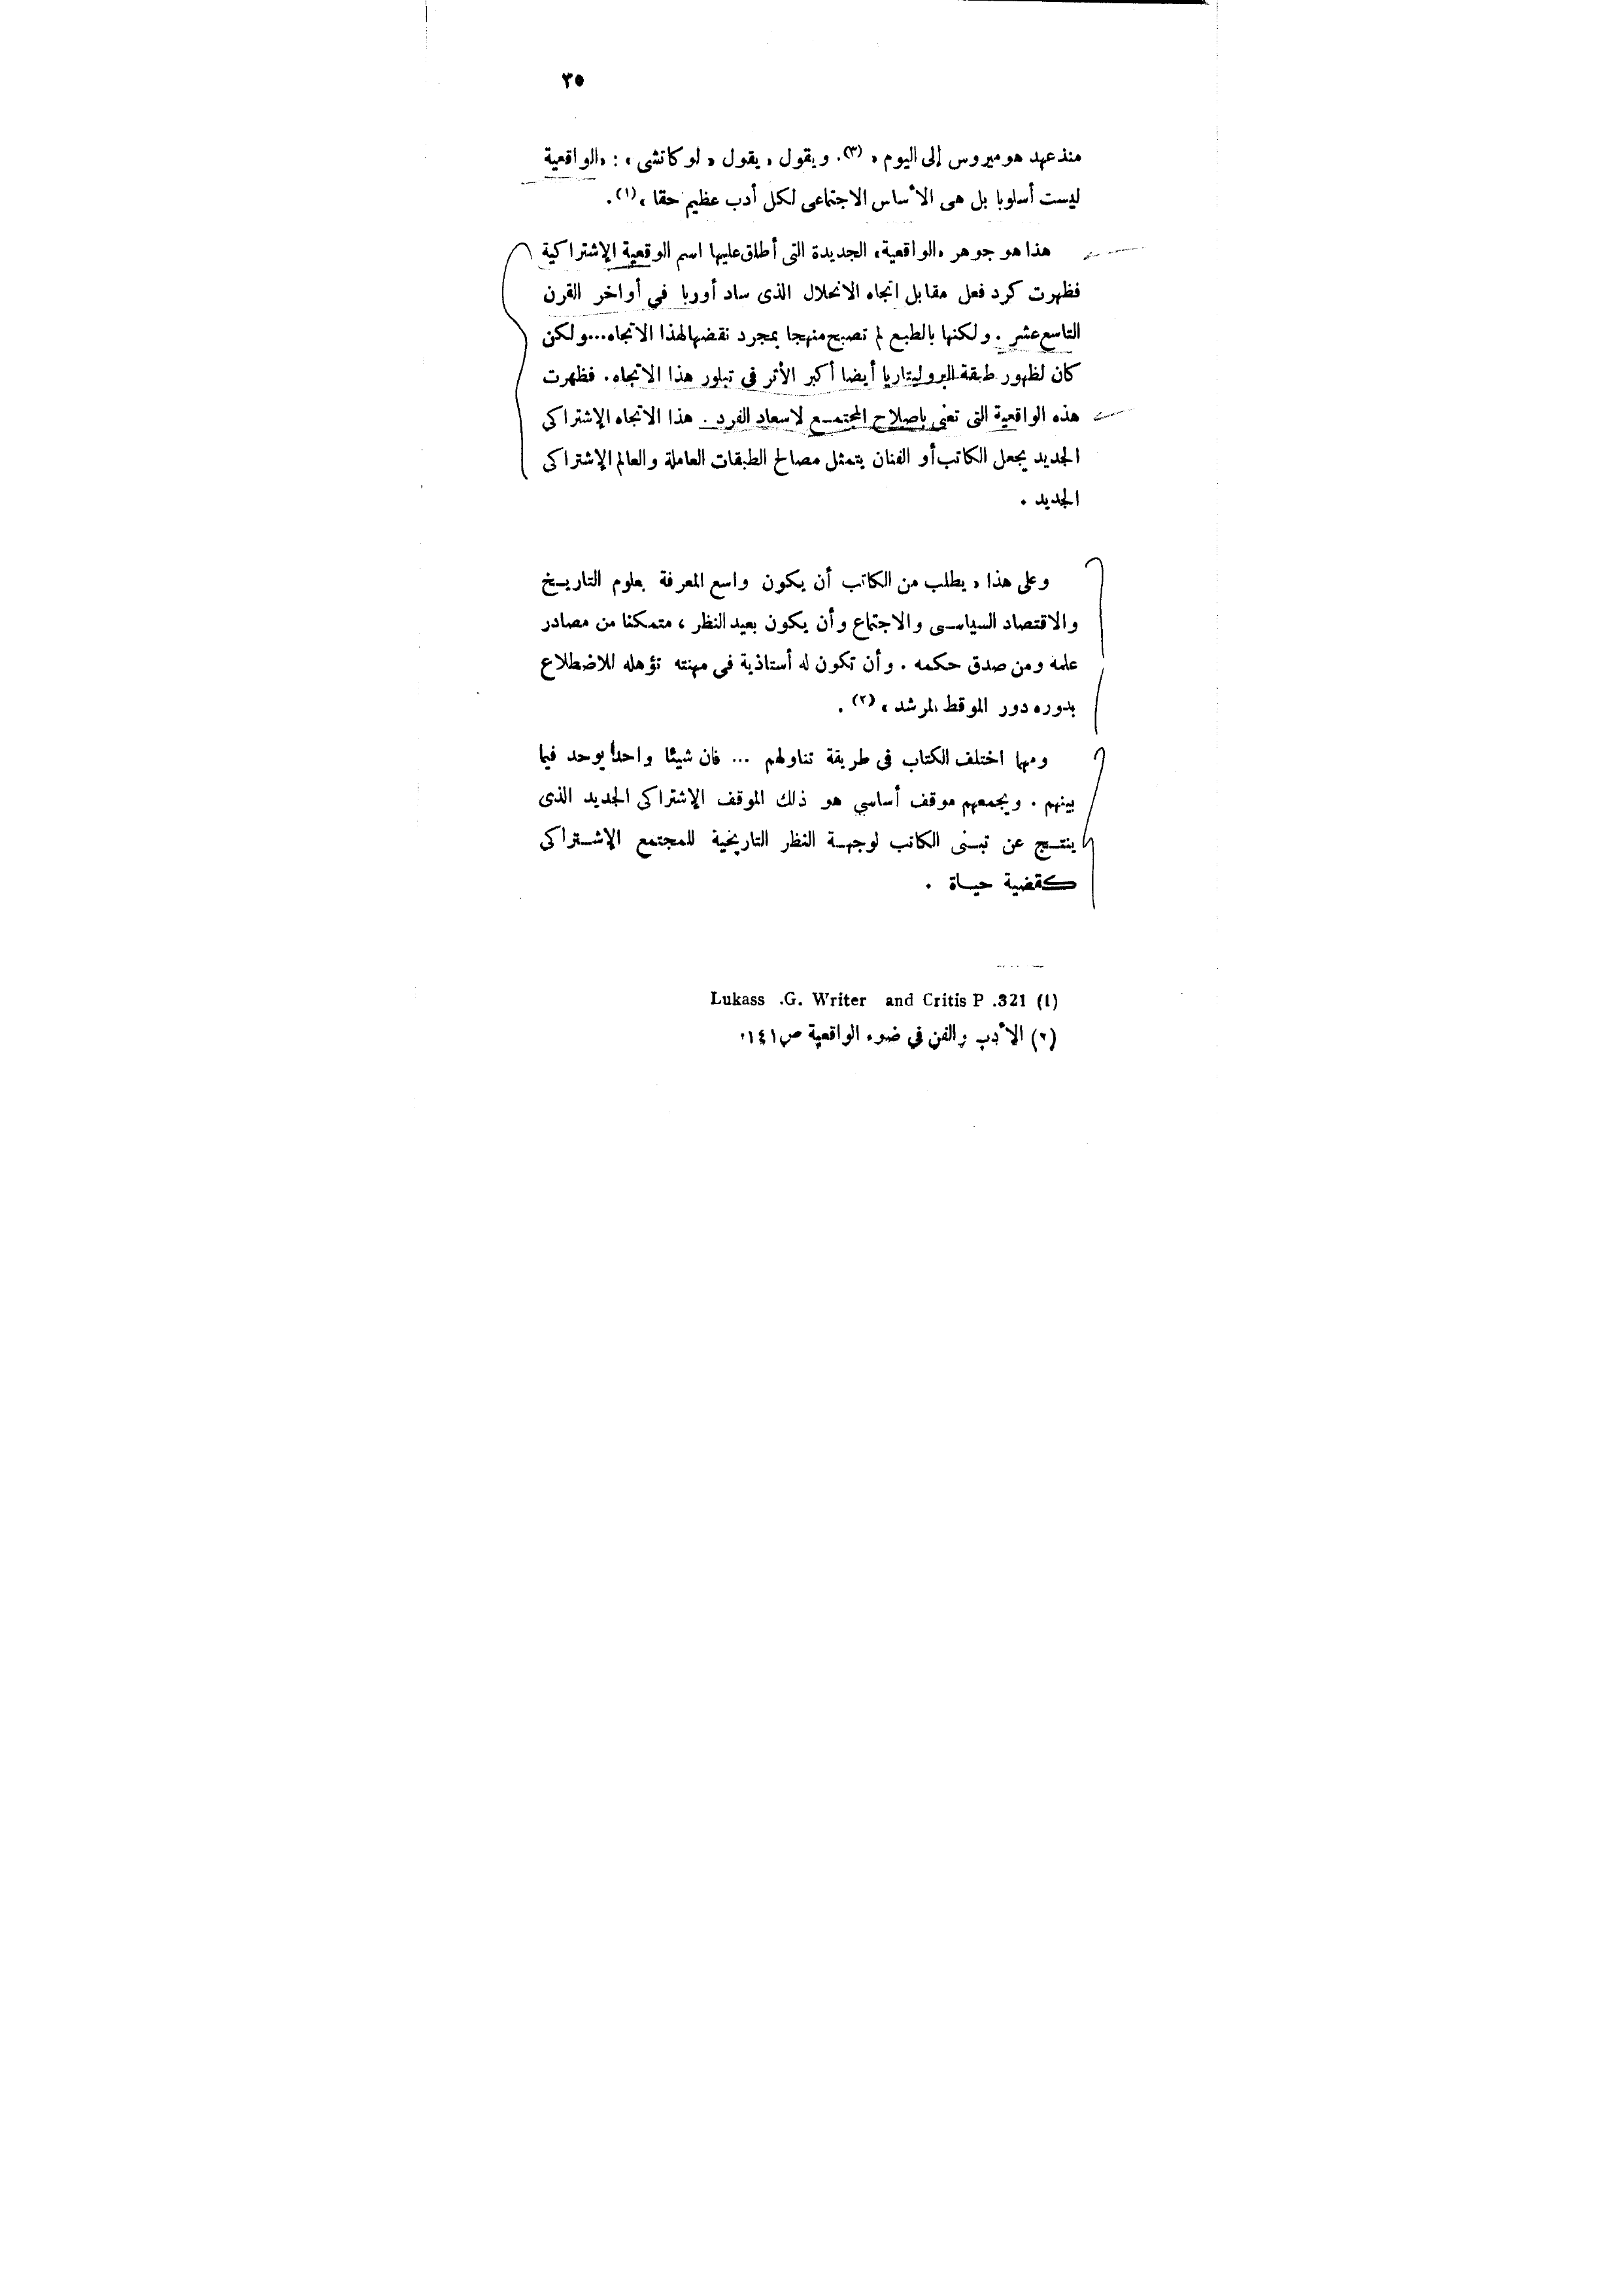 ٣٥
منذ عهد هوميروس إلى اليوم » (٣). ويقول « يقول « لوكاتشى » : «الواقعية
ليست أسلوبا بل هى الأساس الاجتماعى لكل أدب عظيم حقا » (١).
هذا هو جوهر «الواقعية» الجديدة التى أطلق عليها اسم الوقعية الإشتراكية
فظهرت كرد فعل مقابل اتجاه الانحلال الذى ساد أوربا في أواخر القرن
التاسع عشر . ولكنها بالطبع لم تصبح منهجا بمجرد نقضها لهذا الاتجاه... ولكن
كان لظهور طبقة البروليتاريا أيضا أكبر الأثر في تبلور هذا الاتجاه . فظهرت
هذه الواقعية التى تعنى باصلاح المجتمع لاسعاد الفرد . هذا الاتجاه الإشتراكى
الجديد يجعل الكاتب أو الفنان يتمثل مصالح الطبقات العاملة والعالم الإشتراكى
الجديد .
وعلى هذا « يطلب من الكاتب أن يكون واسع المعرفة بعلوم التاريخ
والاقتصاد السياسى والاجتماع وأن يكون بعيد النظر ، متمكنا من مصادر
علمه ومن صدق حكمه . وأن تكون له أستاذية فى مهنته تؤهله للاضطلاع
بدوره دور الموقظ المرشد » (٢) .
ومهما اختلف الكتاب فى طريقة تناولهم ... فان شيئا واحدا يوحد فيما
بينهم . ويجمعهم موقف أساسي هو ذلك الموقف الإشتراكى الجديد الذى
ينتج عن تبنى الكاتب لوجهة النظر التاريخية للمجتمع الإشتراكى
كقضية حياة .
Lukass .G. Writer and Critis P .321 (1)
(٢) الأدب والفن في ضوء الواقعية ص ١٤١